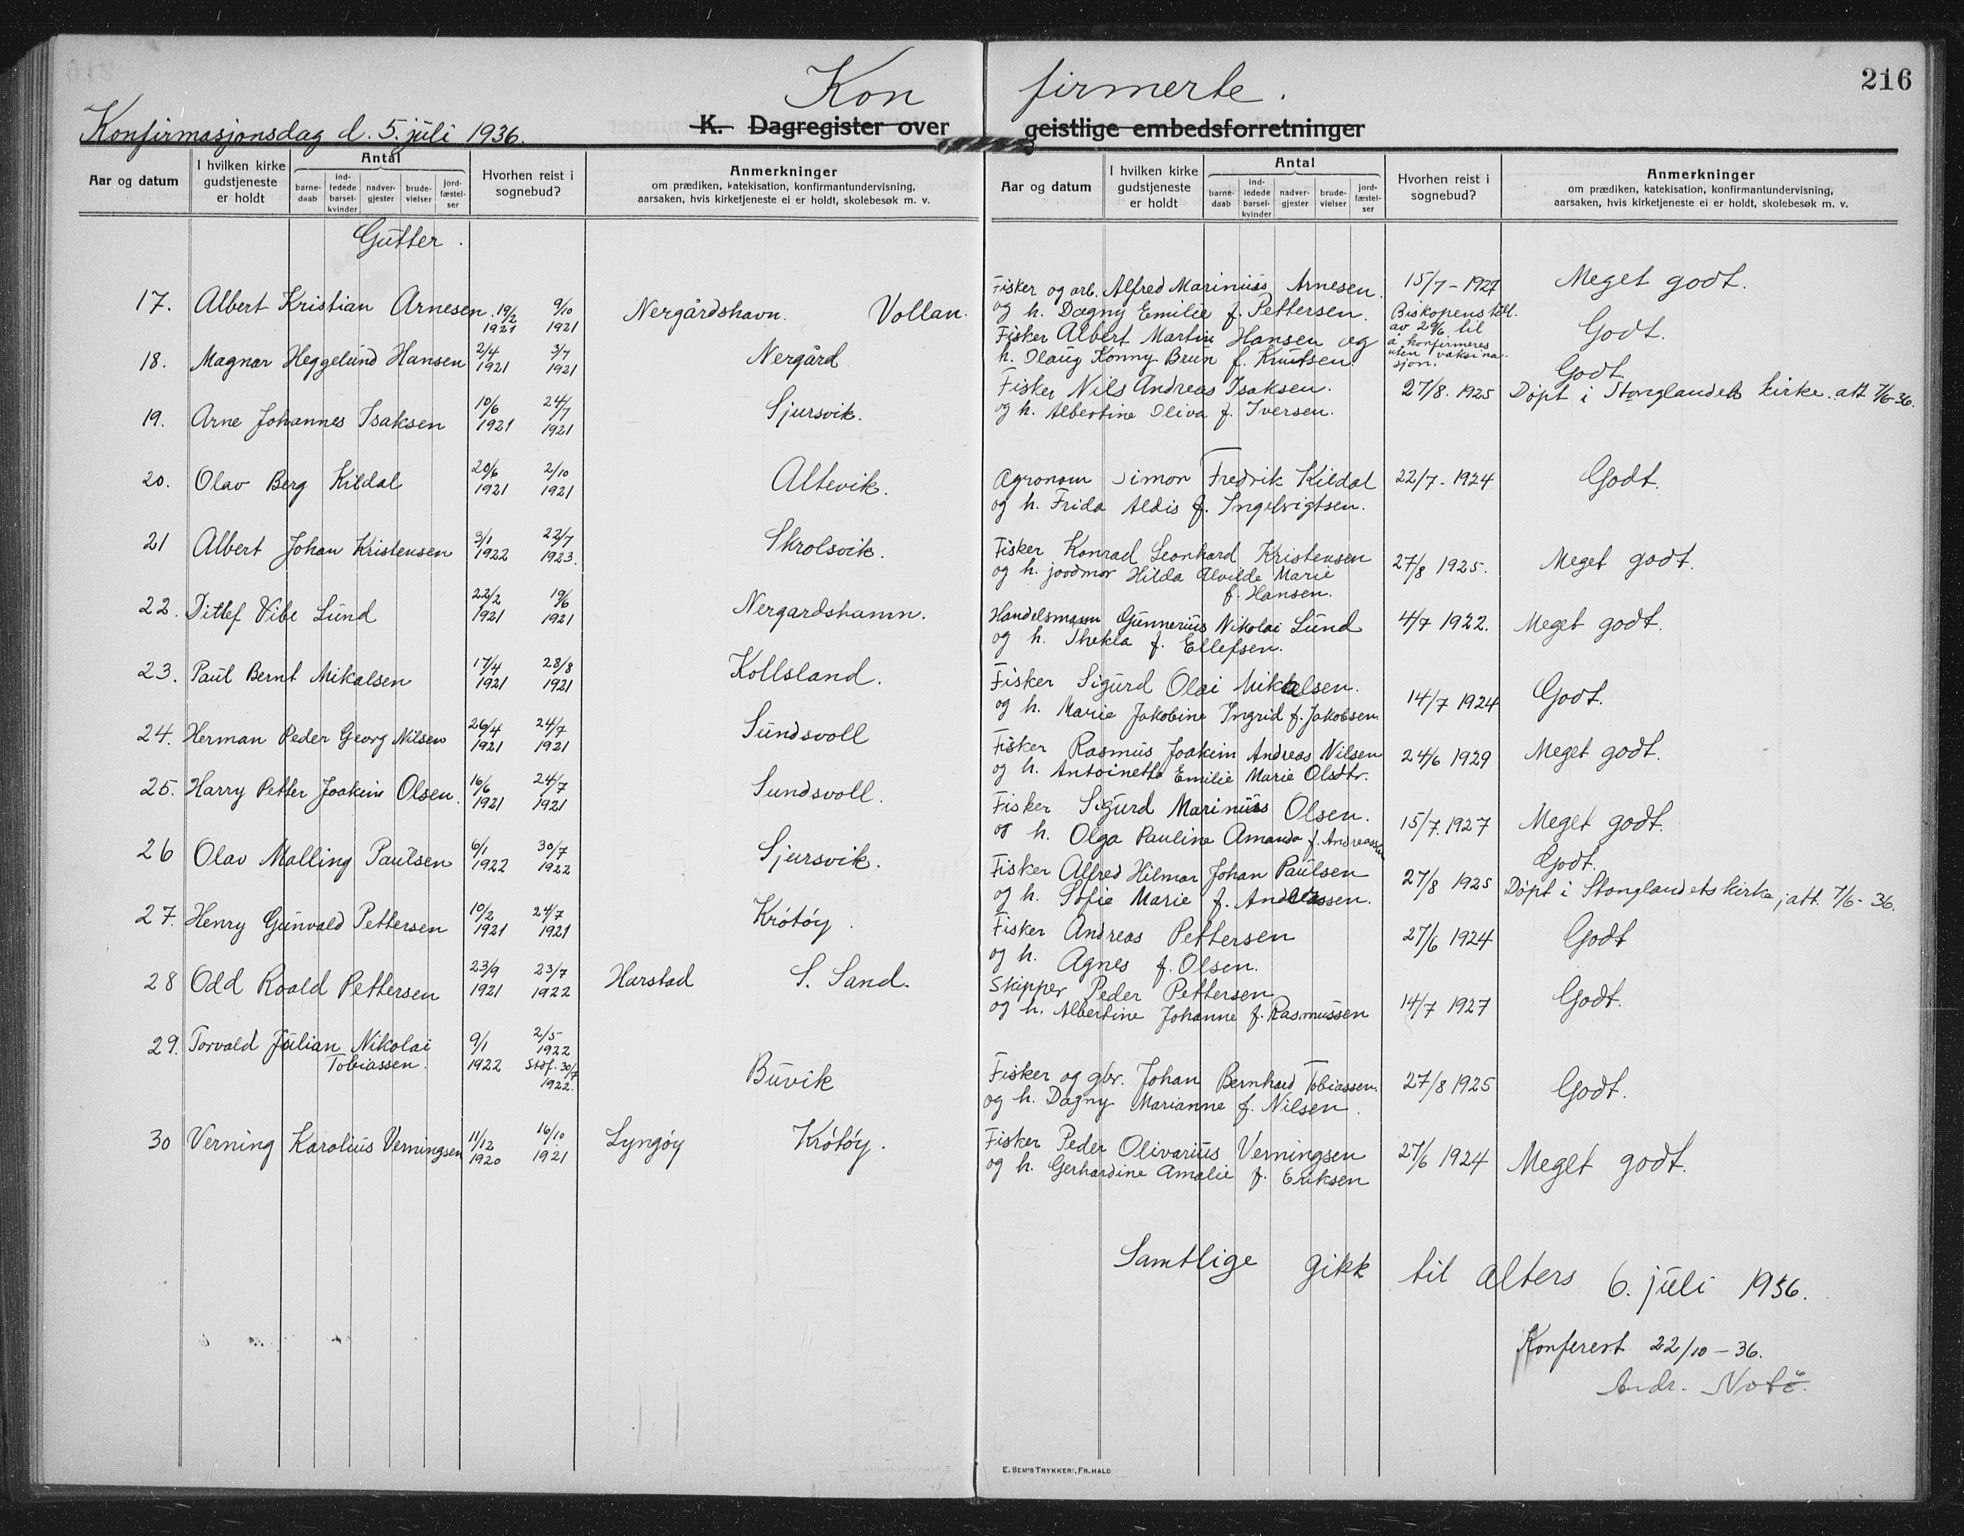 216
Kon firmerte.
Konfirmasjonsdag d. 5. juli 1936.
K. Dagregister over geistlige embedsforretninger
Aar og datum
I hvilken kirke gudstjeneste er holdt
Antal
barne-daab
ind-ledede barsel-kvinder
nadver-gjester
brude-vielser
jord-fæstel-ser
Hvorhen reist i sognebud?
Anmerkninger
om prædiken, katekisation, konfirmantundervisning,
aarsaken, hvis kirketjeneste ei er holdt, skolebesøk m. v.
Aar og datum
I hvilken kirke gudstjeneste er holdt
Antal
barne-daab
ind-ledede barsel-kvinder
nadver-gjester
brude-vielser
jord-fæstel-ser
Hvorhen reist i sognebud?
Anmerkninger
om prædiken, katekisation, konfirmantundervisning,
aarsaken, hvis kirketjeneste ei er holdt, skolebesøk m. v.
Gutter.
17. Albert Kristian Arnesen. 19/2 1921 9/10 1921 Nergårdshavn. Vollan.
Fisker og arb. Alfred Marinius Arnesen. 15/7-1927 Meget godt.
og h. Dagny Emilie f. Pettersen.
18. Magnar Heggelund Hansen 2/4 1921 3/7 1921 Nergård
Fisker Albert Martin Hansen og Godt.
h. Olaug Konny Brun f. Knutsen.
Biskopens till.
av 29/6 til
å konfirmeres
uten vaksina-
sjon.
19. Arne Johannes Isaksen 10/6 1921 24/7 1921 Sjursvik.
Fisker Nils Andreas Isaksen. 27/8. 1925 Godt
og h. Albertine Oliva f. Iversen. Døpt i Stonglandets kirke. att 7/6-36.
20. Olav Berg Kildal 20/6 1921 2/10 1921 Altevik.
Agronom Simon Fredrik Kildal 22/7-1924 Godt.
og h. Frida Aldis f. Ingebrigtsen.
21 Albert Johan Kristensen 3/1 1922 22/7 1923. Skrolsvik.
Fisker Konrad Leonhard Kristensen 27/8 1925. Meget godt.
og h. jordmor Hilda Alvilde Marie
f. Hansen.
22. Ditlef Vibe Lund 22/2 1921 19/6 1921 Nergardshamn.
Handelsmann Gunnerius Nikolai Lund 4/7 1922. Meget godt.
og h. Thekla f. Ellefsen.
23. Paul Bernt Mikalsen 17/4 1921 28/8 1921 Kollsland.
Fisker Sigurd Olai Mikalsen. 14/7 1924 Godt.
og h. Marie Jakobine Ingrid f. Jakobsen.
24. Herman Peder Georg Nilsen 26/4 1921 24/7 1921 Sundsvoll
Fisker Rasmus Joakim Andreas Nilsen 24/6 1929 Meget godt.
og h. Antoinette Emilie Marie Olsdtr.
25. Harry Petter Joakim Olsen. 16/6 1921 24/7 1921 Sundsvoll.
Fisker Sigurd Marinius Olsen. 15/7. 1927 Meget godt.
og h. Olga Pauline Amanda f. Andreassen
26 Olav Malling Paulsen 6/1 1922 30/7 1922 Sjursvik.
Fisker Alfred Hilmar Johan Paulsen 27/8 1925 Godt.
og h. Sofie Marie f. Andreassen. Døpt i Stonglandets kirke, att. 7/6-36.
27. Henry Gunvald Pettersen 10/2 1921 24/7 1921 Krötöy.
Fisker Andreas Pettersen 27/6 1924 Godt
og h. Agnes f. Olsen.
28 Odd Roald Pettersen 23/9 1921 23/7 1922 Harstad S. Sand.
Skipper Peder Pettersen 14/7 1927 Godt.
og h. Albertine Johanne f. Rasmussen
29. Torvald Julian Nikolai Tobiassen. 9/1 1922 2/5 1922 Stdf. 30/7 1922. Buvik
Fisker og gbr. Johan Bernhard Tobiassen. 27/8 1925 Godt.
og h. Dagny Marianne f. Nilsen.
30 Verning Karolius Verningsen 11/12 1920 16/10 1921 Lyngöy Krötöy.
Fisker Peder Olivarius Verningsen 27/6 1924 Meget godt.
og h. Gerhardine Amalie f. Eriksen
Samtlige gikk til alters 6. juli 1936.
Konferert 22/10-36.
Andr.
E. SEM'S TRYKKERI, FR.HALD